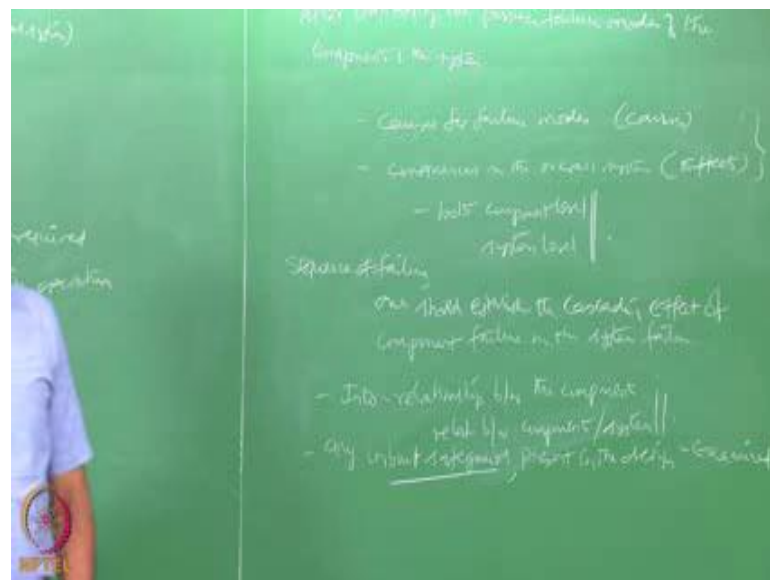 required
operation
After identifying the possible failure modes of the
Component & the system
- Causes for failure modes (causes)
- consequences on the overall system (Effects)
- both component level
system level
Sequence of failure
one should establish the Cascading effect of
component failure on the system failure
- Inter-relationship b/w the component
relat b/w component/system
- Any inbuilt safeguards, present in the design - Examined
NPTEL